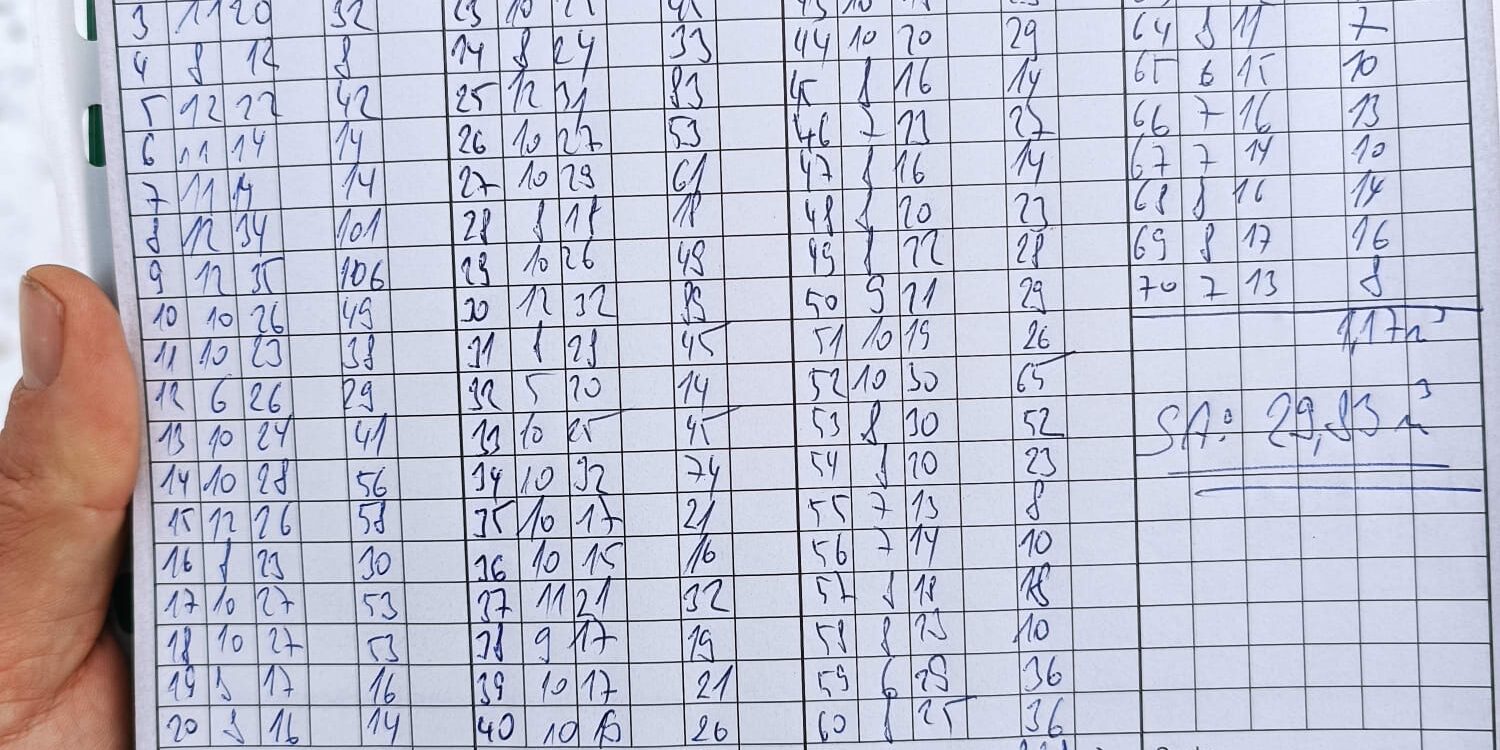 3 11 20 32
4 8 12 8
5 12 22 42
6 11 14 14
7 11 14 14
8 12 34 101
9 12 35 106
10 10 26 49
11 10 23 38
12 6 26 29
13 10 24 41
14 10 28 56
15 12 26 58
16 8 23 30
17 10 27 53
18 10 27 53
19 8 17 16
20 8 16 14
23 10
24 8 24 33
25 12 31 83
26 10 27 53
27 10 29 61
28 8 18 18
29 10 26 49
30 12 32 89
31 8 28 45
32 5 20 14
33 10 25 45
34 10 32 74
35 10 17 21
36 10 15 16
37 11 21 32
38 9 17 19
39 10 17 21
40 10 26
43 10
44 10 20 29
45 8 16 14
46 7 23 27
47 8 16 14
48 8 20 23
49 8 22 28
50 9 21 29
51 10 19 26
52 10 30 65
53 8 30 52
54 8 20 23
55 7 13 8
56 7 14 10
57 8 18 18
58 8 10
59 6 29 36
60 8 25 36
64 8 11 7
65 6 15 10
66 7 16 13
67 7 14 10
68 8 16 14
69 8 17 16
70 7 13 8
1,17 m³
SA: 29,83 m³